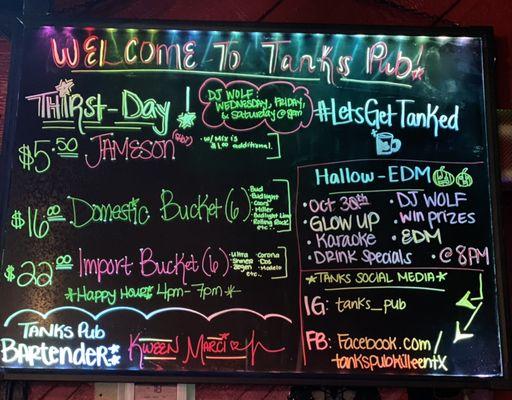 WELCOME TO TANKS PUB!
THIRST-DAY!
DJ WOLF:
WEDNESDAY, FRIDAY,
& SATURDAY @ 8pm
#LetsGetTanked
$5.50 JAMESON
• w/ MIX is
$1.00 additional.
$16.00 Domestic Bucket (6)
• Bud
• Budlight
• Coors
• Miller
• Budlight Lime
• Rolling Rock
etc.
$22.00 Import Bucket (6)
• Ultra
• Shiner
• Corona
• Dos
• Modelo
etc.
*Happy Hour* 4pm - 7pm*
TANKS PUB
BARTENDER:
KWEEN MARCI
Hallow-EDM
• OCT 30th
• GLOW UP
• Karaoke
• DRINK Specials
• DJ WOLF
• WIN PRIZES
• EDM
• @ 8PM
*TANKS SOCIAL MEDIA*
IG: tanks_pub
FB: Facebook.com/
tankspubkilleentx